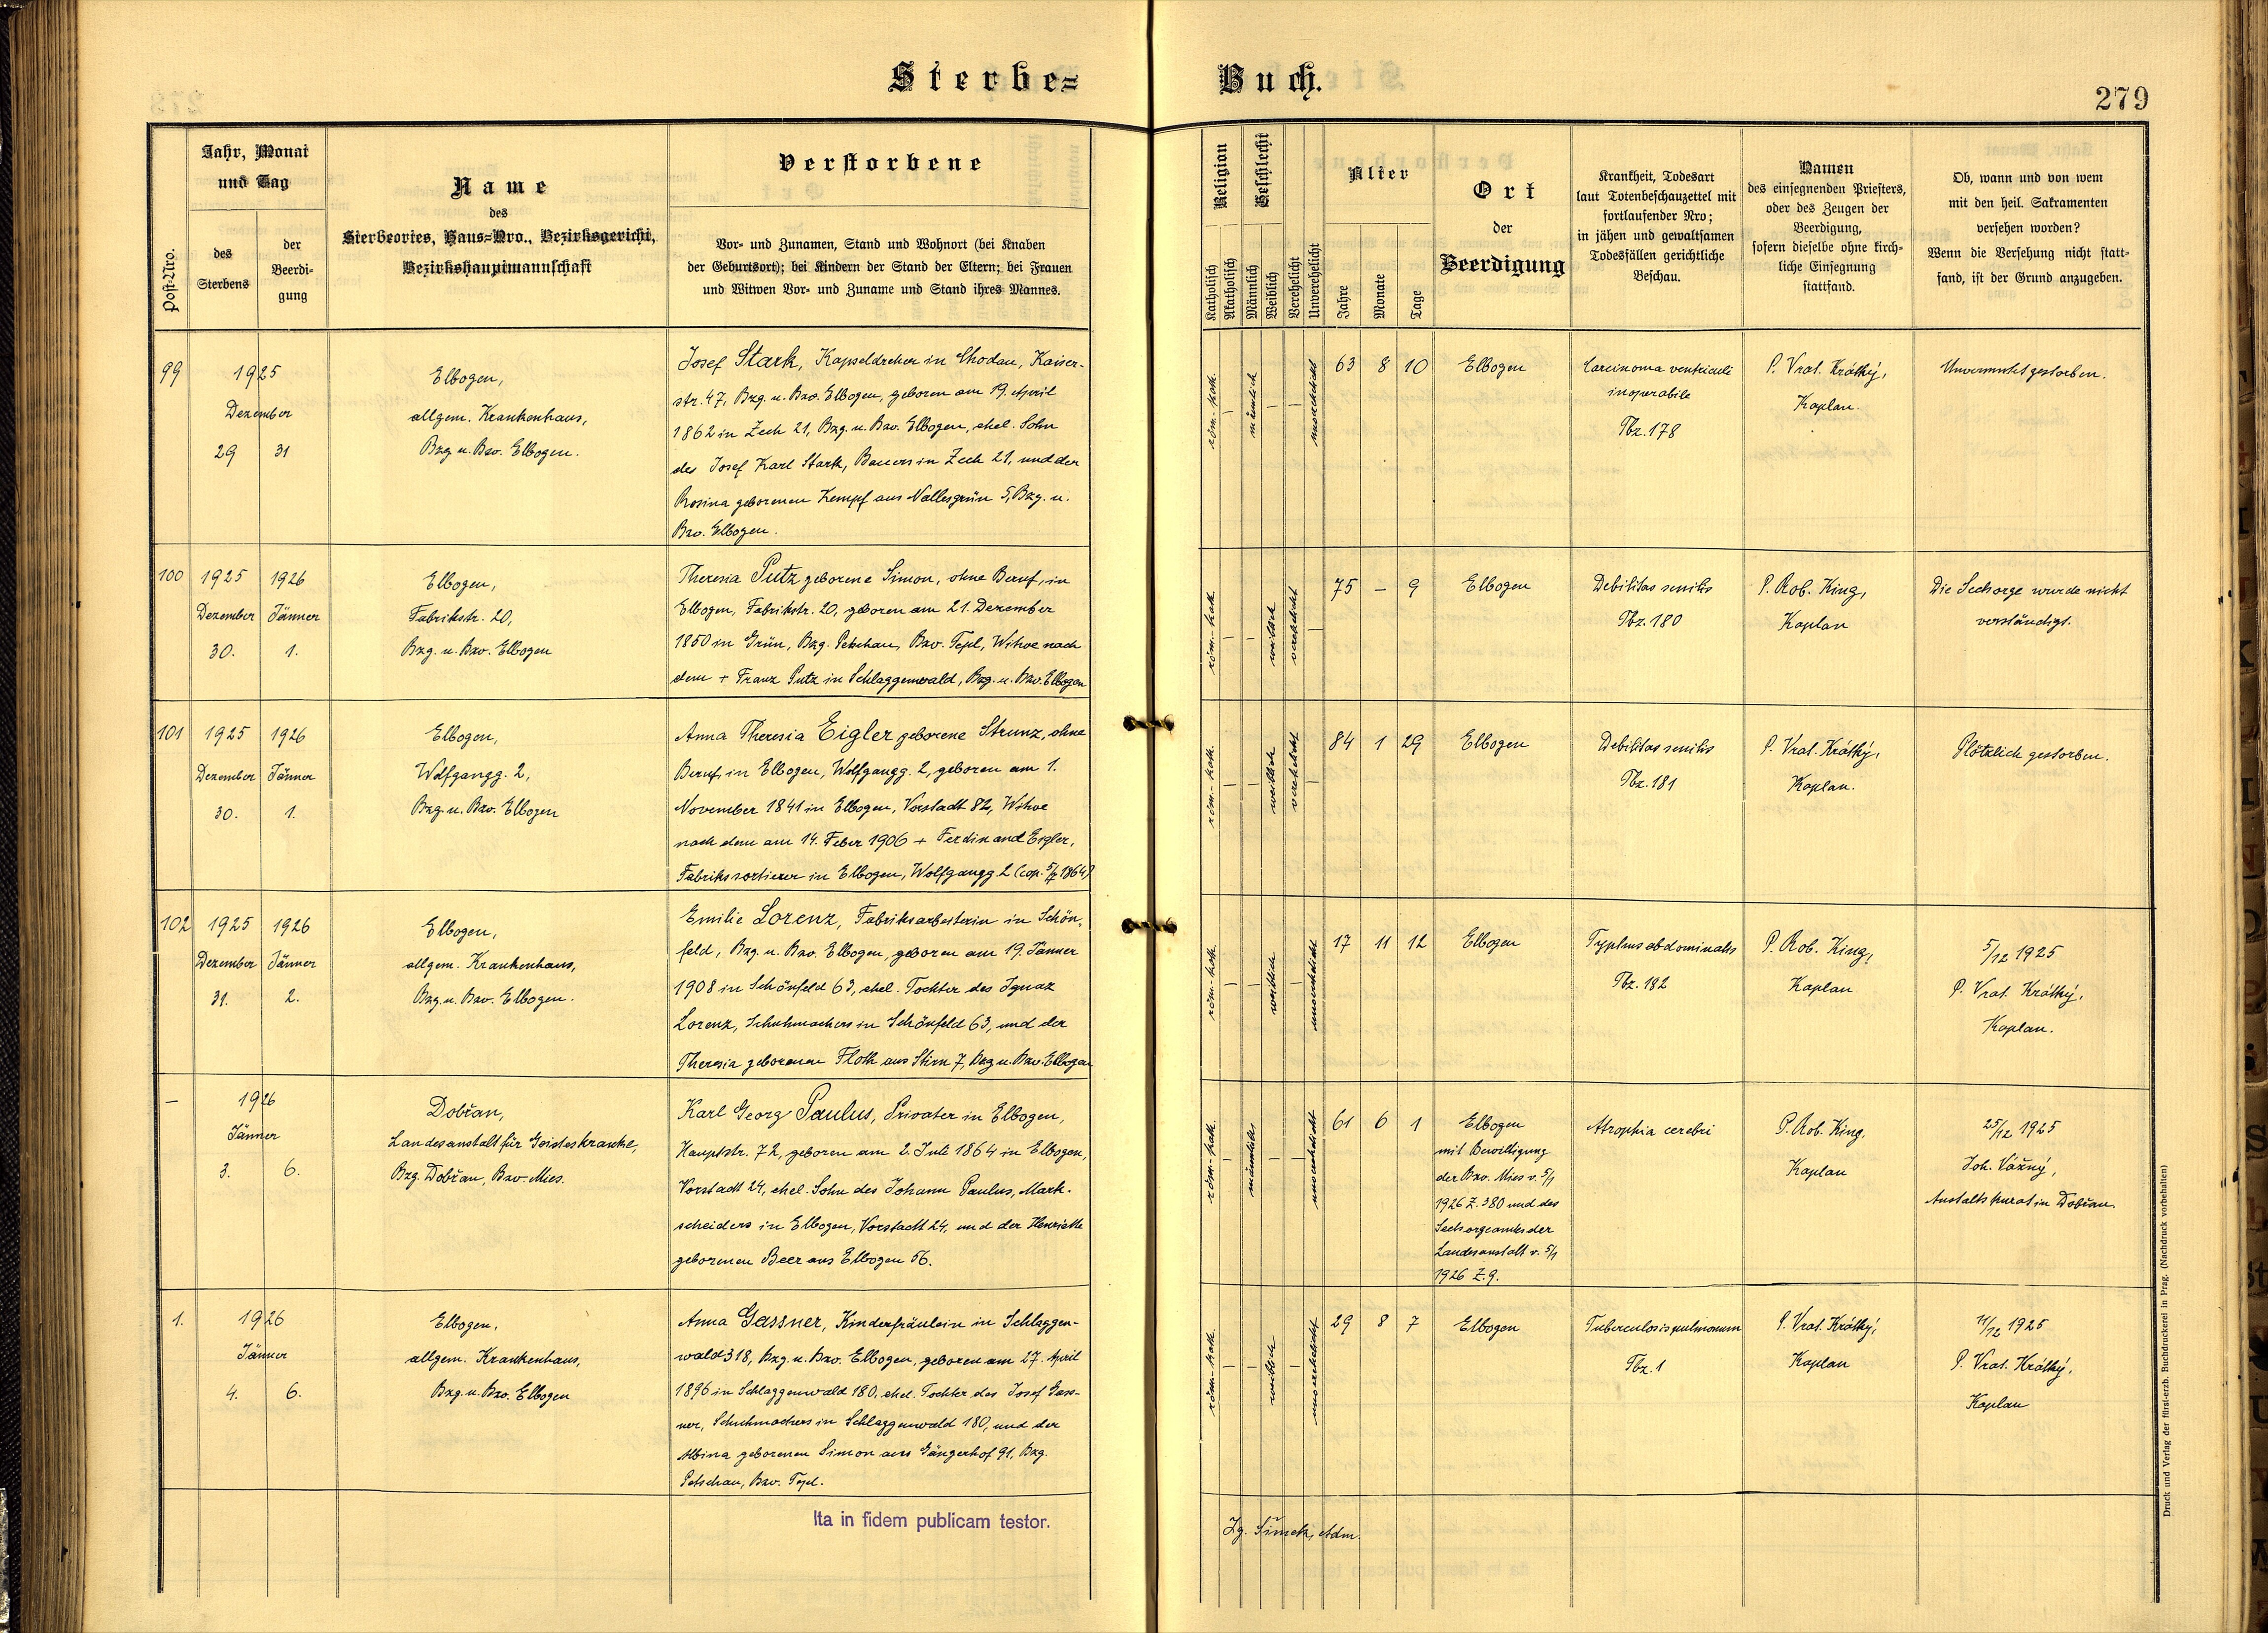 Sterbe=
Buch.
279
Post-Nro.
Jahr, Monat
und Tag
des
Sterbens
der
Beerdi-
gung
Name
des
Sterbeortes, Haus=Nro., Bezirksgericht,
Bezirkshauptmannschaft
Verstorbene
Vor- und Zunamen, Stand und Wohnort (bei Knaben
der Geburtsort); bei Kindern der Stand der Eltern; bei Frauen
und Witwen Vor- und Zuname und Stand ihres Mannes.
Religion
Katholisch
Akatholisch
Geschlecht
Männlich
Weiblich
Verehelicht
Unverehelicht
Alter
Jahre
Monate
Tage
Ort
der
Beerdigung
Krankheit, Todesart
laut Totenbeschauzettel mit
fortlaufender Nro;
in jähen und gewaltsamen
Todesfällen gerichtliche
Beschau.
Namen
des einsegnenden Priesters,
oder des Zeugen der
Beerdigung,
sofern dieselbe ohne kirch-
liche Einsegnung
stattfand.
Ob, wann und von wem
mit den heil. Sakramenten
versehen worden?
Wenn die Versehung nicht statt-
fand, ist der Grund anzugeben.
99
1925
Dezember
29 31
Elbogen,
allgem. Krankenhaus,
Bzg u. Bzv. Elbogen.
Josef Stark, Kapseldreher in Chodau, Kaiser-
str. 47, Bzg. u. Bzv. Elbogen, geboren am 19. April
1862 in Zech 21, Bzg. u. Bzv. Elbogen, ehel. Sohn
des Josef Karl Stark, Bauers in Zech 21, und der
Rosina geborenen Kempf aus Nallesgrün 5, Bzg. u.
Bzv. Elbogen.
röm.-kath.
—
männlich
—
—
unverehelicht
63 8 10
Elbogen
Carcinoma ventriculi
inoperabile
Tbz. 178
P. Vrat. Krátký,
Kaplan.
Unvermutet gestorben.
100
1925 1926
Dezember Jänner
30. 1.
Elbogen,
Fabrikstr. 20,
Bzg. u. Bzv. Elbogen
Theresia Putz geborene Simon, ohne Beruf, in
Elbogen, Fabrikstr. 20, geboren am 21. Dezember
1850 in Grün, Bzg. Petschau, Bzv. Tepl, Witwe nach
dem + Franz Putz in Schlaggenwald, Bzg. u. Bzv. Elbogen
röm.-kath.
—
—
weiblich
verehelicht
—
75 — 9
Elbogen
Debilitas senilis
Tbz. 180
P. Rob. King,
Kaplan
Die Seelsorge wurde nicht
verständigt.
101
1925 1926
Dezember Jänner
30. 1.
Elbogen,
Wolfgangg. 2,
Bzg. u. Bzv. Elbogen
Anna Theresia Eigler geborene Strunz, ohne
Beruf, in Elbogen, Wolfgangg. 2, geboren am 1.
November 1841 in Elbogen, Vorstadt 82, Witwe
nach dem am 14. Feber 1906 + Ferdinand Eigler,
Fabrikssortierer in Elbogen, Wolfgangg 2 (cop. 1864)
röm.-kath.
—
—
weiblich
verehelicht
—
84 1 29
Elbogen
Debilitas senilis
Tbz. 181
P. Vrat. Krátký,
Kaplan.
Plötzlich gestorben.
102
1925 1926
Dezember Jänner
31. 2.
Elbogen,
allgem. Krankenhaus,
Bzg. u. Bzv. Elbogen.
Emilie Lorenz, Fabriksarbeiterin in Schön-
feld, Bzg. u. Bzv. Elbogen, geboren am 19. Jänner
1908 in Schönfeld 63, ehel. Tochter des Ignaz
Lorenz, Schuhmachers in Schönfeld 63, und der
Theresia geborenen Floth aus Stirn 7, Bzg u. Bzv. Elbogen
röm.-kath.
—
—
weiblich
—
unverehelicht
17 11 12
Elbogen
Typhus abdominalis
Tbz. 182
P. Rob. King,
Kaplan
5/12 1925
P. Vrat. Krátký,
Kaplan.
—
1926
Jänner
3. 6.
Dobřan,
Landesanstalt für Geisteskranke,
Bzg. Dobřan, Bzv. Mies.
Karl Georg Paulus, Privater in Elbogen,
Hauptstr. 72, geboren am 2. Juli 1864 in Elbogen,
Vorstadt 24, ehel. Sohn des Johann Paulus, Mark-
scheiders in Elbogen, Vorstadt 24, und der Henriette
geborenen Beer aus Elbogen 56.
röm.-kath.
—
männlich
—
—
unverehelicht
61 6 1
Elbogen
mit Bewilligung
der Bzv. Mies v. 5/1
1926 Z. 380 und des
Seelsorgeamtes der
Landesanstalt v. 5/1
1926 Z. 9.
Atrophia cerebri
P. Rob. King,
Kaplan
25/12 1925
Joh. Vážný,
Anstaltskurat in Dobřan.
1.
1926
Jänner
4. 6.
Elbogen,
allgem. Krankenhaus,
Bzg. u. Bzv. Elbogen
Anna Gassner, Kinderfräulein in Schlaggen-
wald 318, Bzg. u. Bzv. Elbogen, geboren am 27. April
1896 in Schlaggenwald 180, ehel. Tochter des Josef Gass-
ner, Schuhmachers in Schlaggenwald 180, und der
Albina geborenen Simon aus Gängerhof 91, Bzg.
Petschau, Bzv. Tepl.
röm.-kath.
—
—
weiblich
—
unverehelicht
29 8 7
Elbogen
Tuberculosis pulmonum
Tbz. 1
P. Vrat. Krátký,
Kaplan
11/12 1925
P. Vrat. Krátký,
Kaplan
Ita in fidem publicam testor.
Ig. Šimek, Adm.
Druck und Verlag der fürst-erzb. Buchdruckerei in Prag. (Nachdruck vorbehalten)